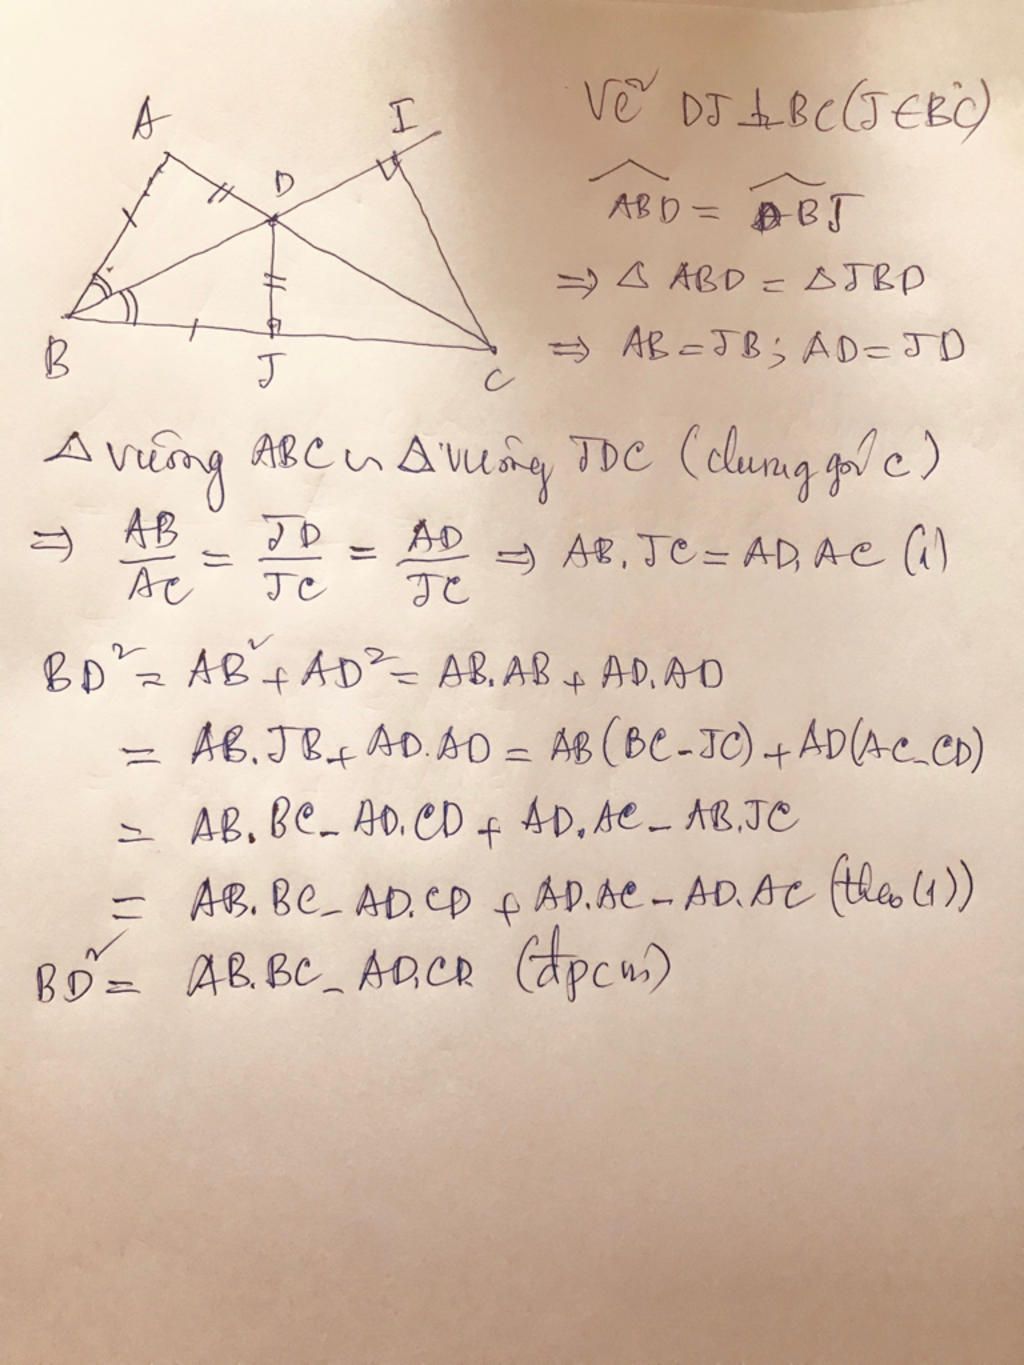 A
I
D
B
J
C
Vẽ DJ ⊥ BC (J ∈ BC)
\widehat{ABD} = \widehat{DBJ}
⇒ Δ ABD = Δ JBD
⇒ AB = JB; AD = JD
Δ vuông ABC ∽ Δ vuông JDC (chung góc C)
⇒ AB/AC = JD/JC = AD/JC ⇒ AB.JC = AD.AC (1)
BD² = AB² + AD² = AB.AB + AD.AD
= AB.JB + AD.AD = AB(BC - JC) + AD(AC - CD)
= AB.BC - AD.CD + AD.AC - AB.JC
= AB.BC - AD.CD + AD.AC - AD.AC (theo (1))
BD² = AB.BC - AD.CD (đpcm)